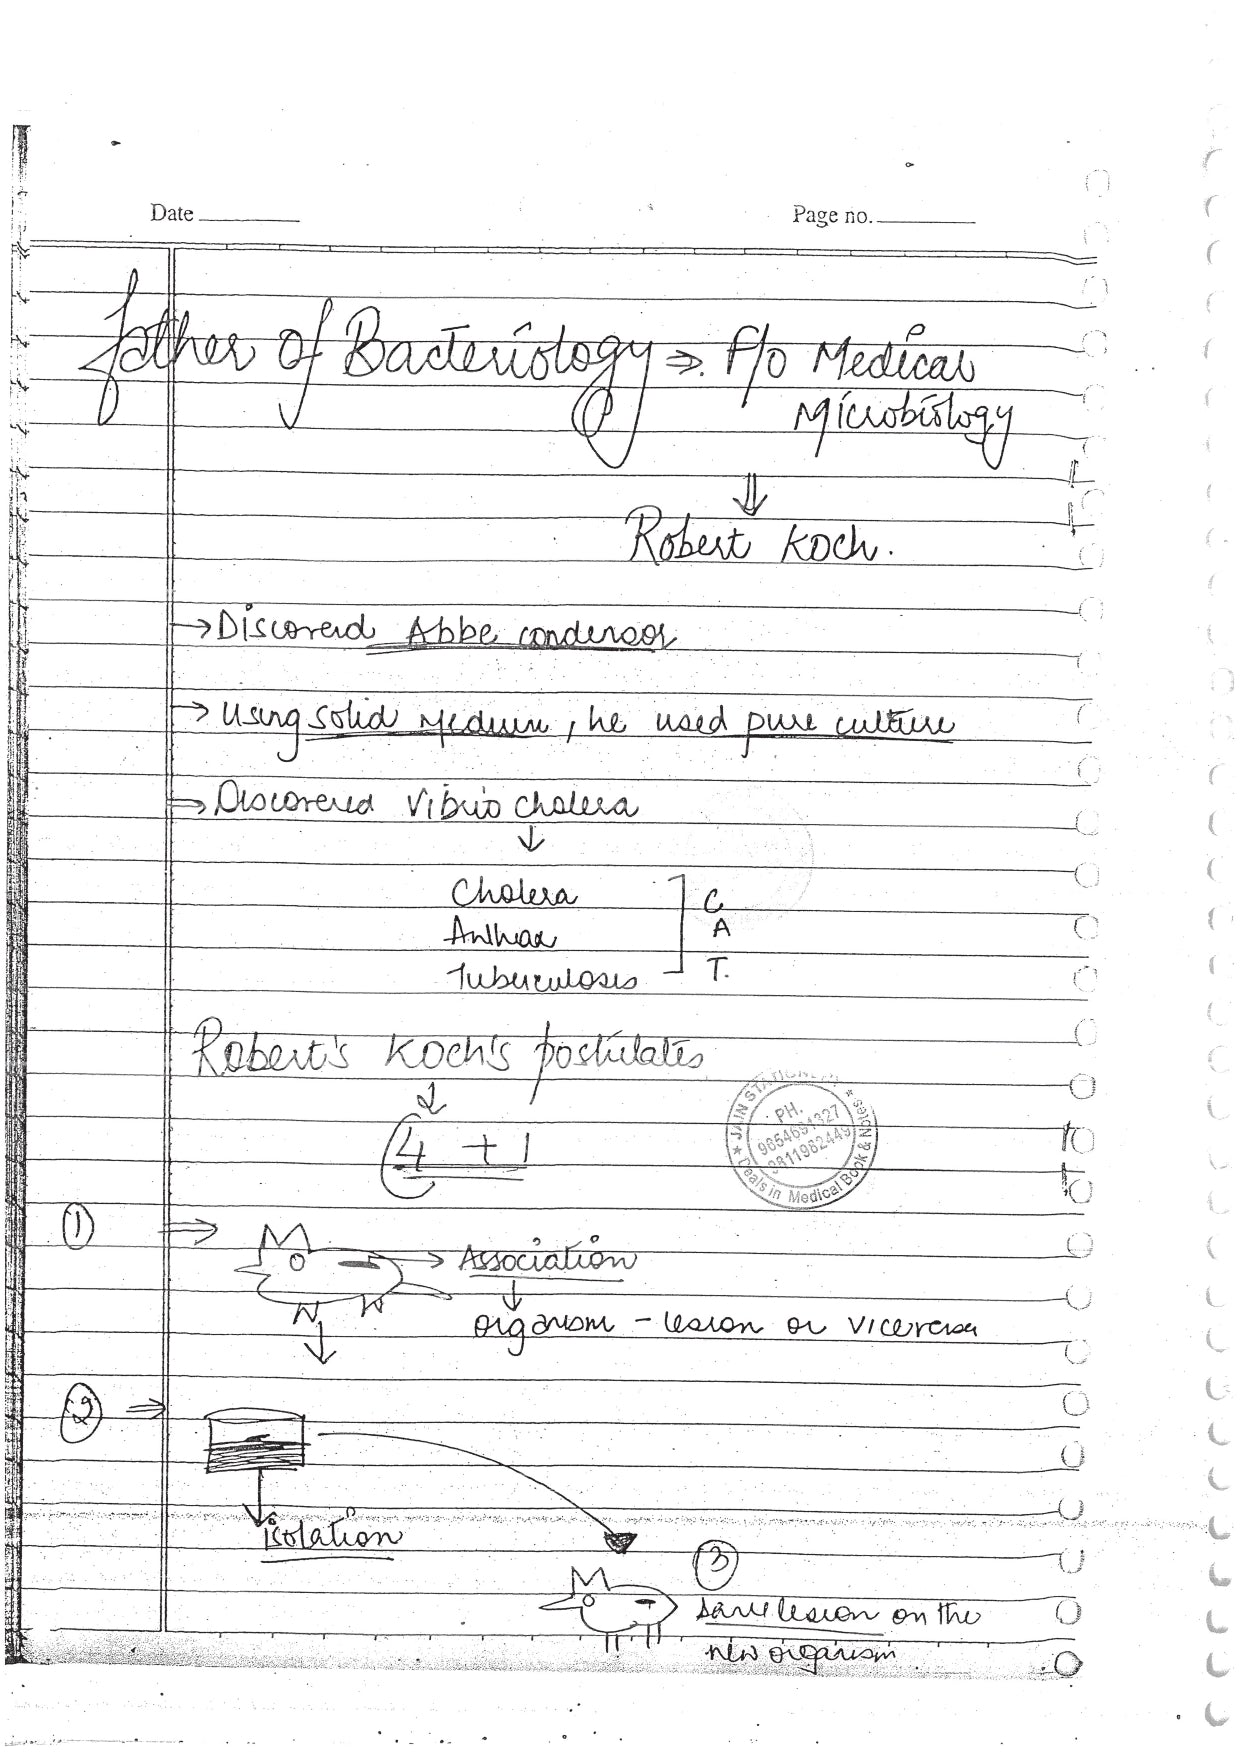 Date
Page no.
Father of Bacteriology ⇒ F/o Medical
Microbiology
⇓
Robert Koch.
→ Discovered Abbe condensor
→ Using solid medium, he used pure culture
→ Discovered Vibrio cholera
↓
Cholera C
Anthrax A
Tuberculosis T.
Robert's Koch's postulates
↓
4 + 1
① ⇒
→ Association
↓
organism - lesion or viceversa
② ⇒
isolation
③
same lesion on the
new organism
★ JAIN STATIONERY ★
PH.
9811982449
Deals in Medical Book & Notes